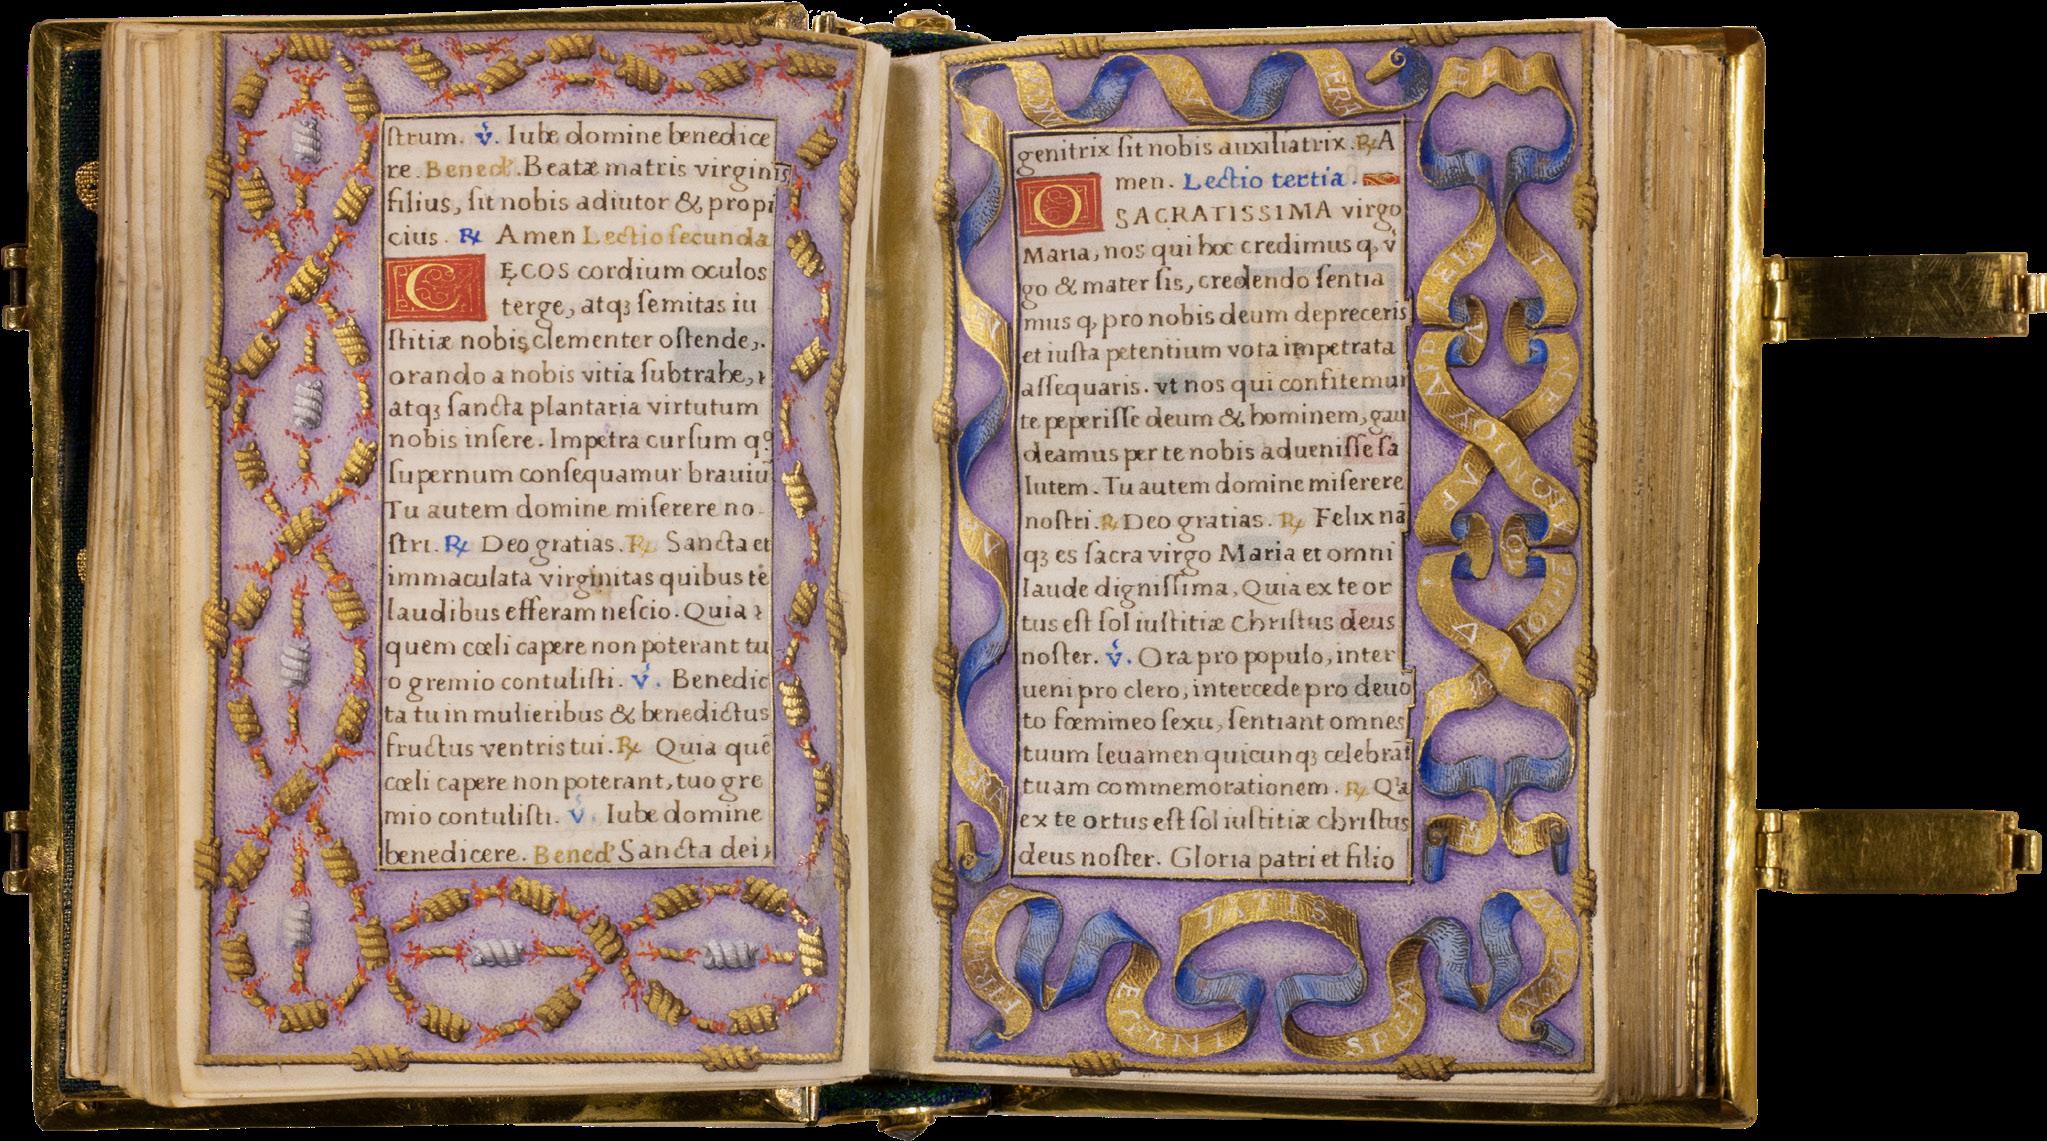 ſtrum. v̇. Iube domine benedice
re. Bened'. Beatæ matris virginis̄
filius, ſit nobis adiutor & propi
cius. ℞ Amen Lectio ſecunda
CĘCOS cordium oculos
terge, atqꝫ ſemitas iu
ſtitiæ nobis clementer oſtende,.
orando a nobis vitia ſubtrahe, ꝛ
atqꝫ ſancta plantaria virtutum
nobis inſere. Impetra curſum qͦ
ſupernum conſequamur brauiū
Tu autem domine miſerere no-
ſtri. ℞ Deo gratias. ℞ Sancta et
immaculata virginitas quibus te
laudibus efferam neſcio. Quia ꝛ
quem cœli capere non poterant tu
o gremio contuliſti. v̇. Benedic
ta tu in mulieribus & benedictus
fructus ventris tui. ℞ Quia quē
cœli capere non poterant, tuo gre
mio contuliſti. v̇. Iube domine
benedicere. Bened' Sancta dei,
genitrix ſit nobis auxiliatrix. ℞ A
men. Lectio tertia.
O SACRATISSIMA virgo
Maria, nos qui hoc credimus q, v̇
go & mater ſis, credendo ſentia
mus q, pro nobis deum depreceris
et iuſta petentium vota impetrata
aſſequaris. vt nos qui confitemur
te peperiſſe deum & hominem, gau
deamus per te nobis adueniſſe ſa
lutem. Tu autem domine miſerere
noſtri. ℞ Deo gratias. ℞ Felix nā
qꝫ es ſacra virgo Maria et omni
laude digniſſima, Quia ex te or
tus eſt ſol iuſtitiæ Chriſtus deus
noſter. v̇. Ora pro populo, inter
ueni pro clero, intercede pro deuo
to fœmineo ſexu, ſentiant omnes
tuum leuamen quicunqꝫ celebrāt
tuam commemorationem. ℞ Qͥa
ex te ortus eſt ſol iuſtitiæ chriſtus
deus noſter. Gloria patri et filio
ETERNI
SPEM